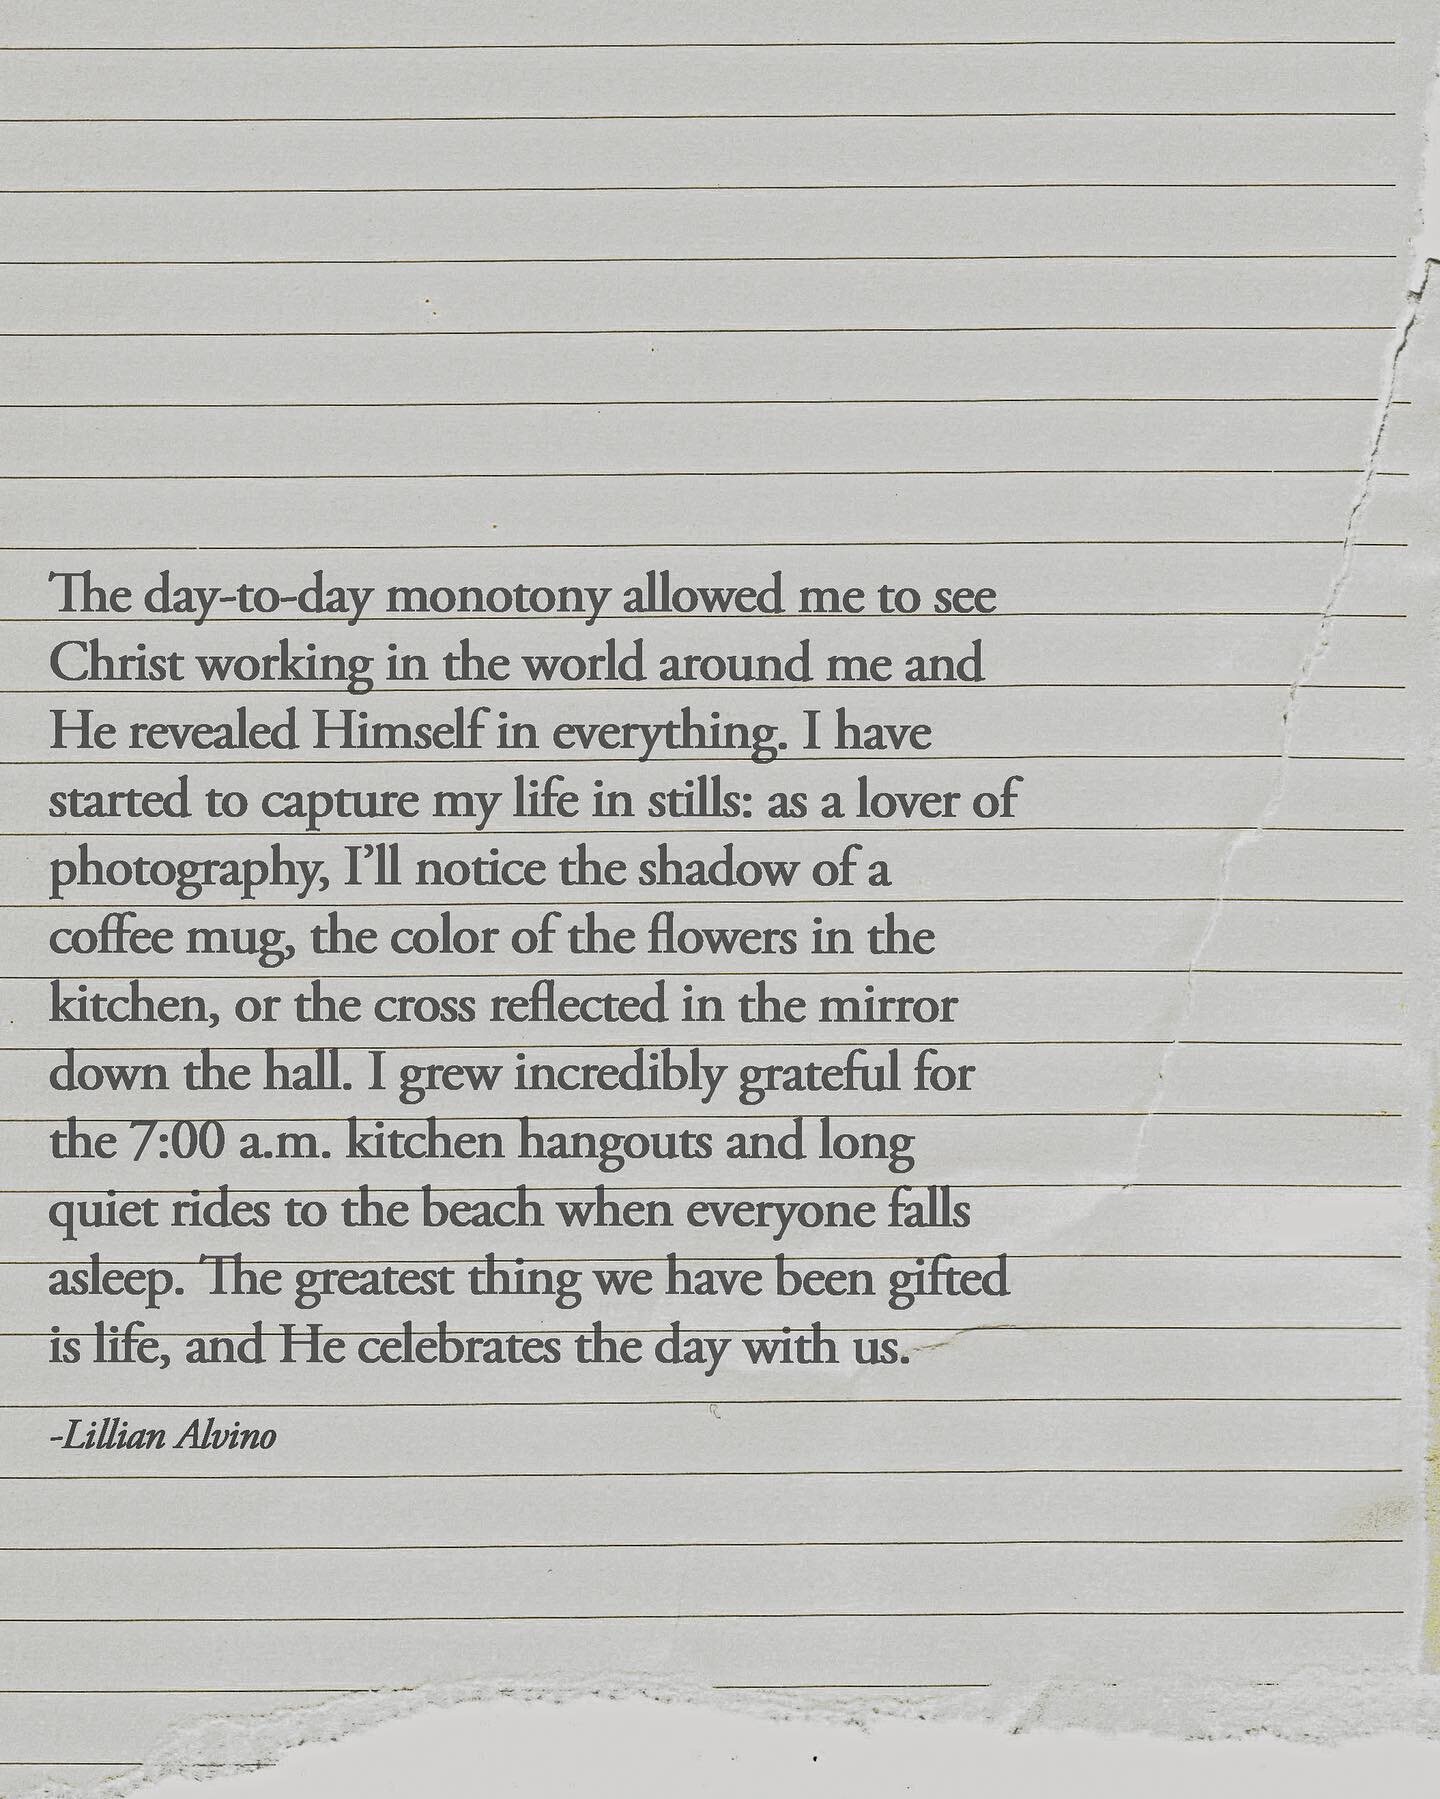 The day-to-day monotony allowed me to see
Christ working in the world around me and
He revealed Himself in everything. I have
started to capture my life in stills: as a lover of
photography, I’ll notice the shadow of a
coffee mug, the color of the flowers in the
kitchen, or the cross reflected in the mirror
down the hall. I grew incredibly grateful for
the 7:00 a.m. kitchen hangouts and long
quiet rides to the beach when everyone falls
asleep. The greatest thing we have been gifted
is life, and He celebrates the day with us.
-Lillian Alvino